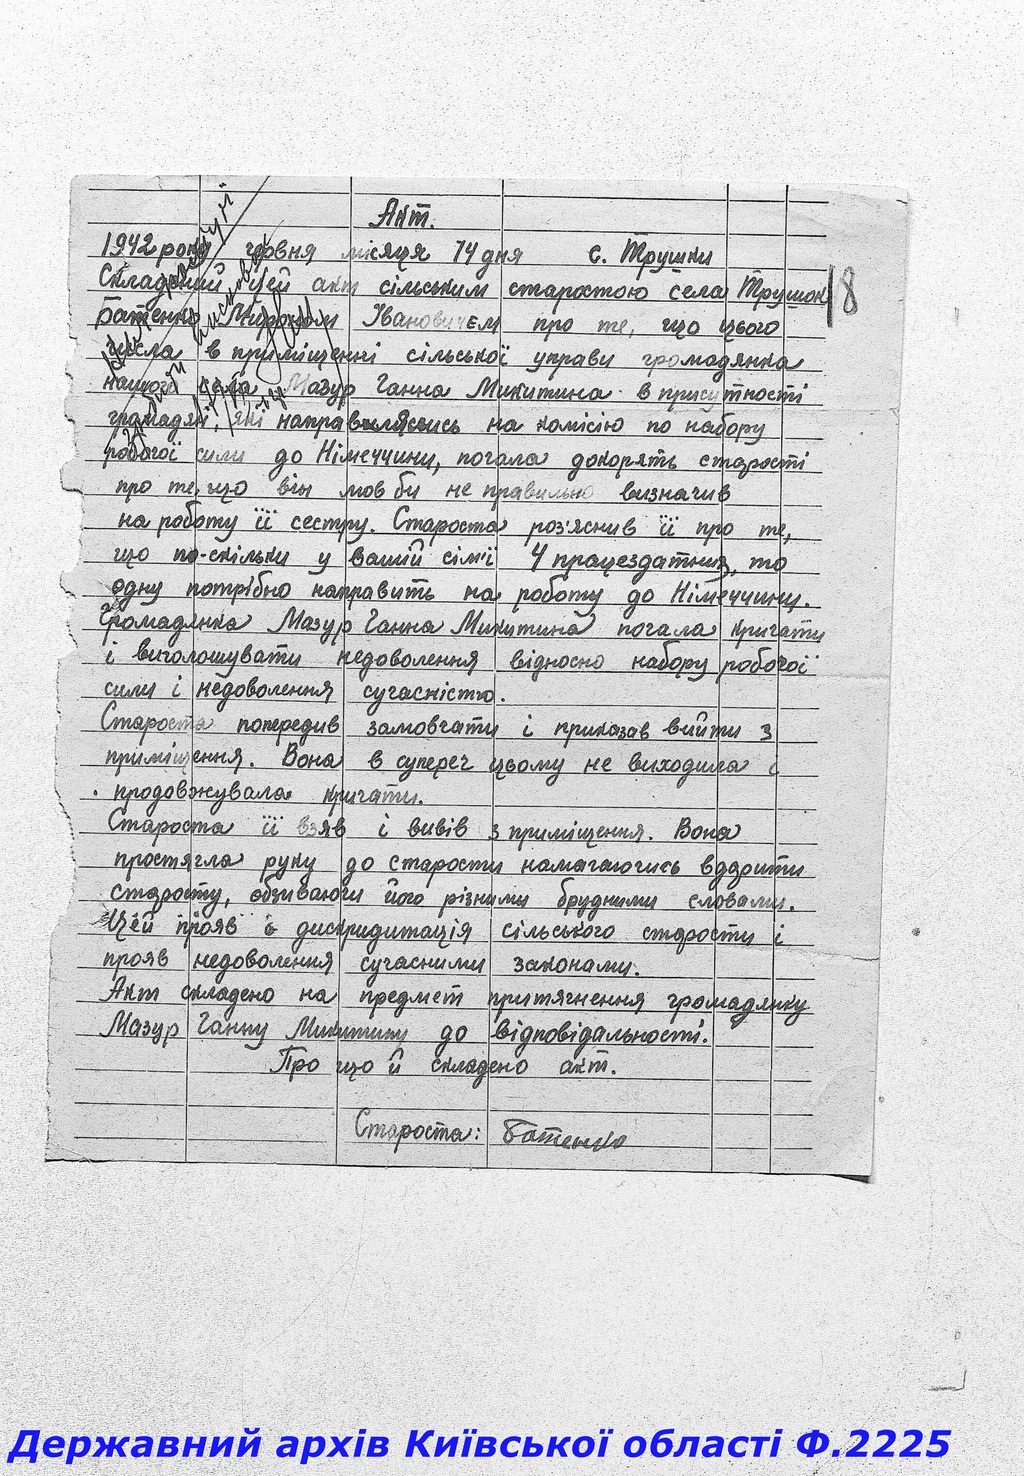 Акт.
1942 року червня місяця 14 дня с. Трушки
Складений цей акт сільським старостою села Трушок
Батенко Мироном Івановичем про те, що цього
числа в приміщенні сільської управи громадянка
нашого села Мазур Ганна Микитина в присутності
громадян, які направлялись на комісію по набору
робочої сили до Німеччини, почала докорять старості
про те, що він мов би не правильно визначив
на роботу її сестру. Староста роз'яснив її про те,
що по-скільки у вашій сімї 4 працездатних, то
одну потрібно направить на роботу до Німеччини.
Громадянка Мазур Ганна Микитина почала кричати
і виголошувати недоволення відносно набору робочої
сили і недоволення сучасністю.
Староста попередив замовчати і приказав вийти з
приміщення. Вона в супереч цьому не виходила і
продовжувала кричати.
Староста її взяв і вивів з приміщення. Вона
простягла руку до старости намагаючись вдарити
старосту, обзиваючи його різними брудними словами.
Цей прояв є дискридитація сільського старости і
прояв недоволення сучасними законами.
Акт складено на предмет притягнення громадянку
Мазур Ганну Микитину до відповідальності.
Про що й складено акт.
Староста: Батенко
18
Державний архів Київської області Ф.2225